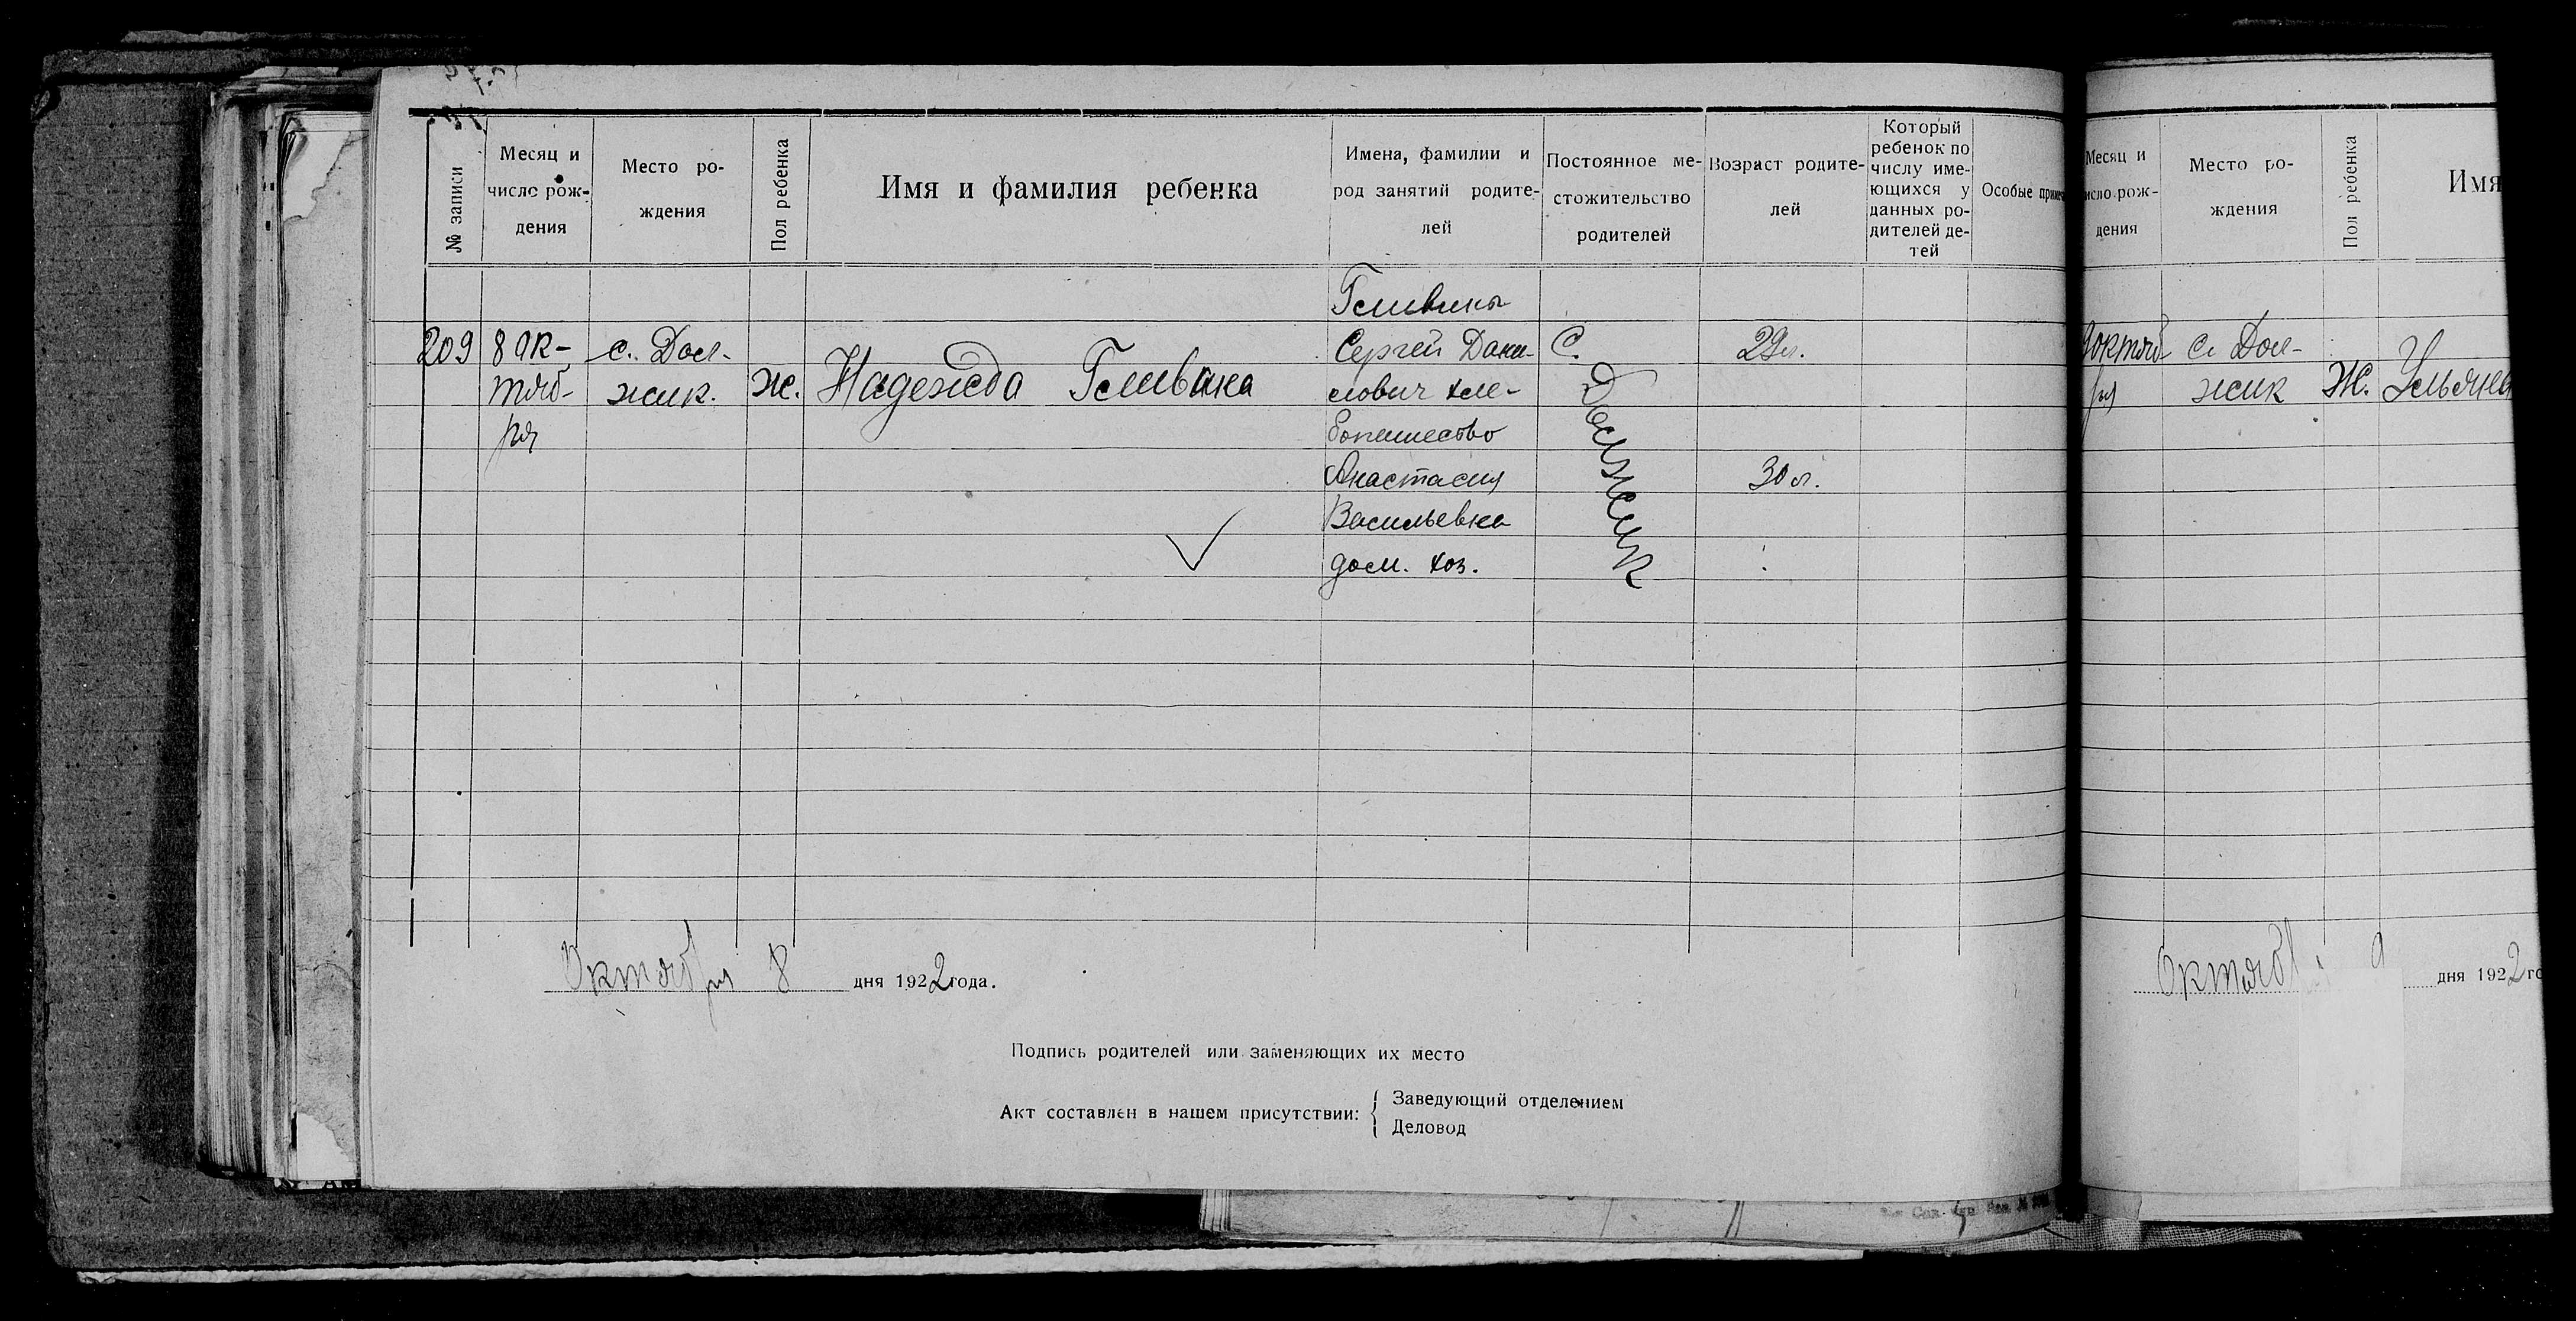 № записи
Месяц и
число рож-
дения
Место ро-
ждения
Пол ребенка
Имя и фамилия ребенка
Имена, фамилии и
род занятий родите-
лей
Постоянное ме-
стожительство
родителей
Возраст родите-
лей
Который
ребенок по
числу име-
ющихся у
данных ро-
дителей де-
тей
Особые
209
8 Ок-
тяб-
ря
с. Дол-
жик.
Ж.
Надежда
Сергей Дани-
лович хле-
бопашество
Анастасия
Васильевна
дом. хоз.
С.
Должик
29л.
30 л.
Октября 8 дня 1922 года.
Подпись родителей или заменяющих их место
Акт составлен в нашем присутствии:
Заведующий отделением
Деловод
Месяц и
число рож-
дения
Место ро-
ждения
Пол ребенка
Имя
октяб-
ря
с. Дол-
жик
Ж.
дня 1922